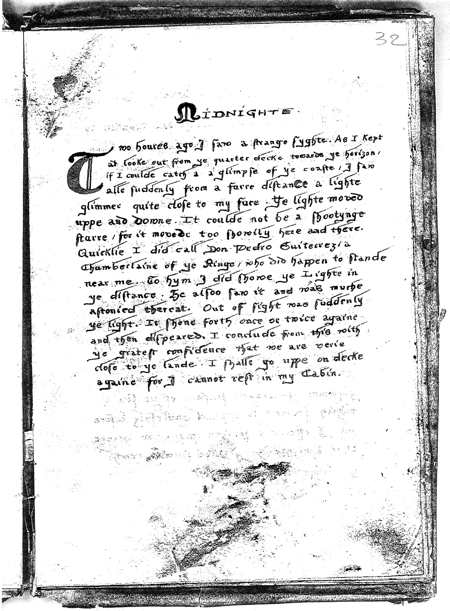 32
MIDNIGHTE.
Two houres ago, I saw a strange syghte. As I kept
at looke out from ye quarter decke towards ye horizon,
if I coulde catch a a'glimpse of ye coaste, I saw
alle suddenly from a farre distance a lighte
glimmer quite close to my face. Ye lighte moved
uppe and downe. It coulde not be a shootynge
starre, for it moved: too slowlly here and there.
Quicklie I did call Don Pedro Guiterrez, a
Chamberlaine of ye Kinge, who did happen to stande
near me. To hym I did showe ye Lighte in
ye distance. He alsoo saw it and was muche
astonied thereat. Out of sight was suddenly
ye light. It shone forth once or twice againe
and then dispeared. I conclude from this with
ye gratest confidence that we are verie
close to ye lande. I shalle go uppe on decke
againe for I cannot rest in my Cabin.